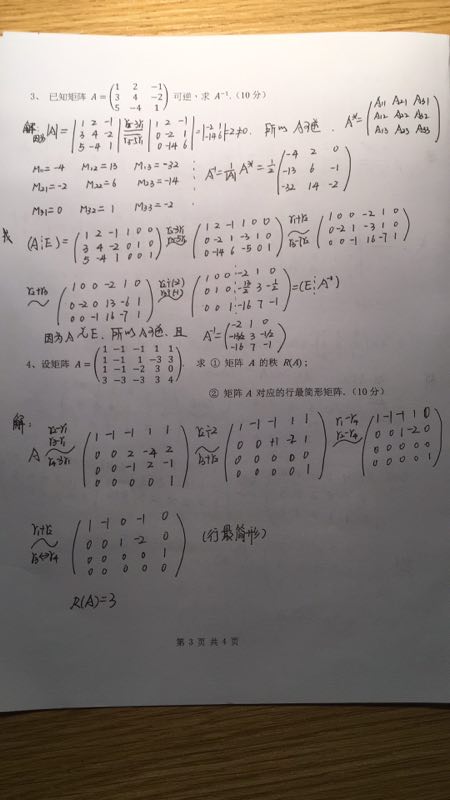 3、 已知矩阵 A = (1 2 -1; 3 4 -2; 5 -4 1) 可逆，求 A⁻¹.（10 分）
解: 因为 |A| = |1 2 -1; 3 4 -2; 5 -4 1| r₂-3r₁ r₃-5r₁ |1 2 -1; 0 -2 1; 0 -14 6| = |-2 1; -14 6| = 2 ≠ 0, 所以 A可逆. A* = (A₁₁ A₂₁ A₃₁; A₁₂ A₂₂ A₃₂; A₁₃ A₂₃ A₃₃)
M₁₁ = -4 M₁₂ = 13 M₁₃ = -32
M₂₁ = -2 M₂₂ = 6 M₂₃ = -14
M₃₁ = 0 M₃₂ = 1 M₃₃ = -2
A⁻¹ = 1/|A| A* = 1/2 (-4 2 0; -13 6 -1; -32 14 -2)
(A⋮E) = (1 2 -1 1 0 0; 3 4 -2 0 1 0; 5 -4 1 0 0 1) r₂-3r₁ r₃-5r₁ ~ (1 2 -1 1 0 0; 0 -2 1 -3 1 0; 0 -14 6 -5 0 1) r₁+r₂ r₃-7r₂ ~ (1 0 0 -2 1 0; 0 -2 1 -3 1 0; 0 0 -1 16 -7 1)
r₂+r₃ ~ (1 0 0 -2 1 0; 0 -2 0 13 -6 1; 0 0 -1 16 -7 1) r₂÷(-2) r₃÷(-1) ~ (1 0 0 -2 1 0; 0 1 0 -13/2 3 -1/2; 0 0 1 -16 7 -1) = (E⋮A⁻¹)
因为 A ~ E, 所以 A可逆, 且 A⁻¹ = (-2 1 0; -13/2 3 -1/2; -16 7 -1)
4、设矩阵 A = (1 -1 -1 1 1; 1 -1 1 -3 3; 1 -1 -2 3 0; 3 -3 -3 3 4). 求 ① 矩阵 A 的秩 R(A)；
② 矩阵 A 对应的行最简形矩阵.（10 分）
解:
A r₂-r₁ r₃-r₁ r₄-3r₁ ~ (1 -1 -1 1 1; 0 0 2 -4 2; 0 0 -1 2 -1; 0 0 0 0 1) r₂÷2 r₃+r₂ ~ (1 -1 -1 1 1; 0 0 +1 -2 1; 0 0 0 0 0; 0 0 0 0 1) r₁-r₄ r₂-r₄ ~ (1 -1 -1 1 0; 0 0 1 -2 0; 0 0 0 0 0; 0 0 0 0 1)
r₁+r₂ r₃↔r₄ ~ (1 -1 0 -1 0; 0 0 1 -2 0; 0 0 0 0 1; 0 0 0 0 0) (行最简形)
R(A)=3
第 3 页 共 4 页